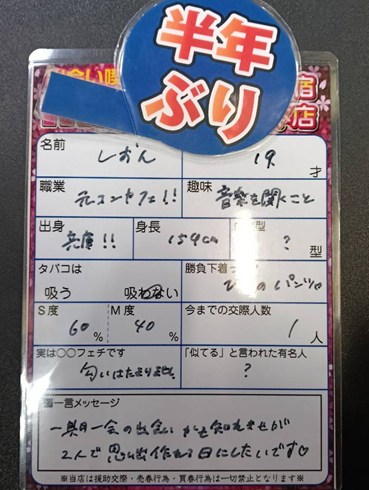 半年
ぶり
会い喫
宿
店
名前 しおん 19 才
職業 元コンカフェ!! 趣味 音楽を聞くこと
出身 兵庫!! 身長 159cm 型 ? 型
タバコは 吸う 吸わない 勝負下着 のパンツ
S度 60 % M度 40 % 今までの交際人数 1 人
実は○○フェチです 匂いはたまりません 「似てる」と言われた有名人 ?
一言メッセージ
一期一会の出会いかも知れませんが
2人で思い出作れる日にしたいです♡
※当店は援助交際・売春行為・買春行為は一切禁止となります※